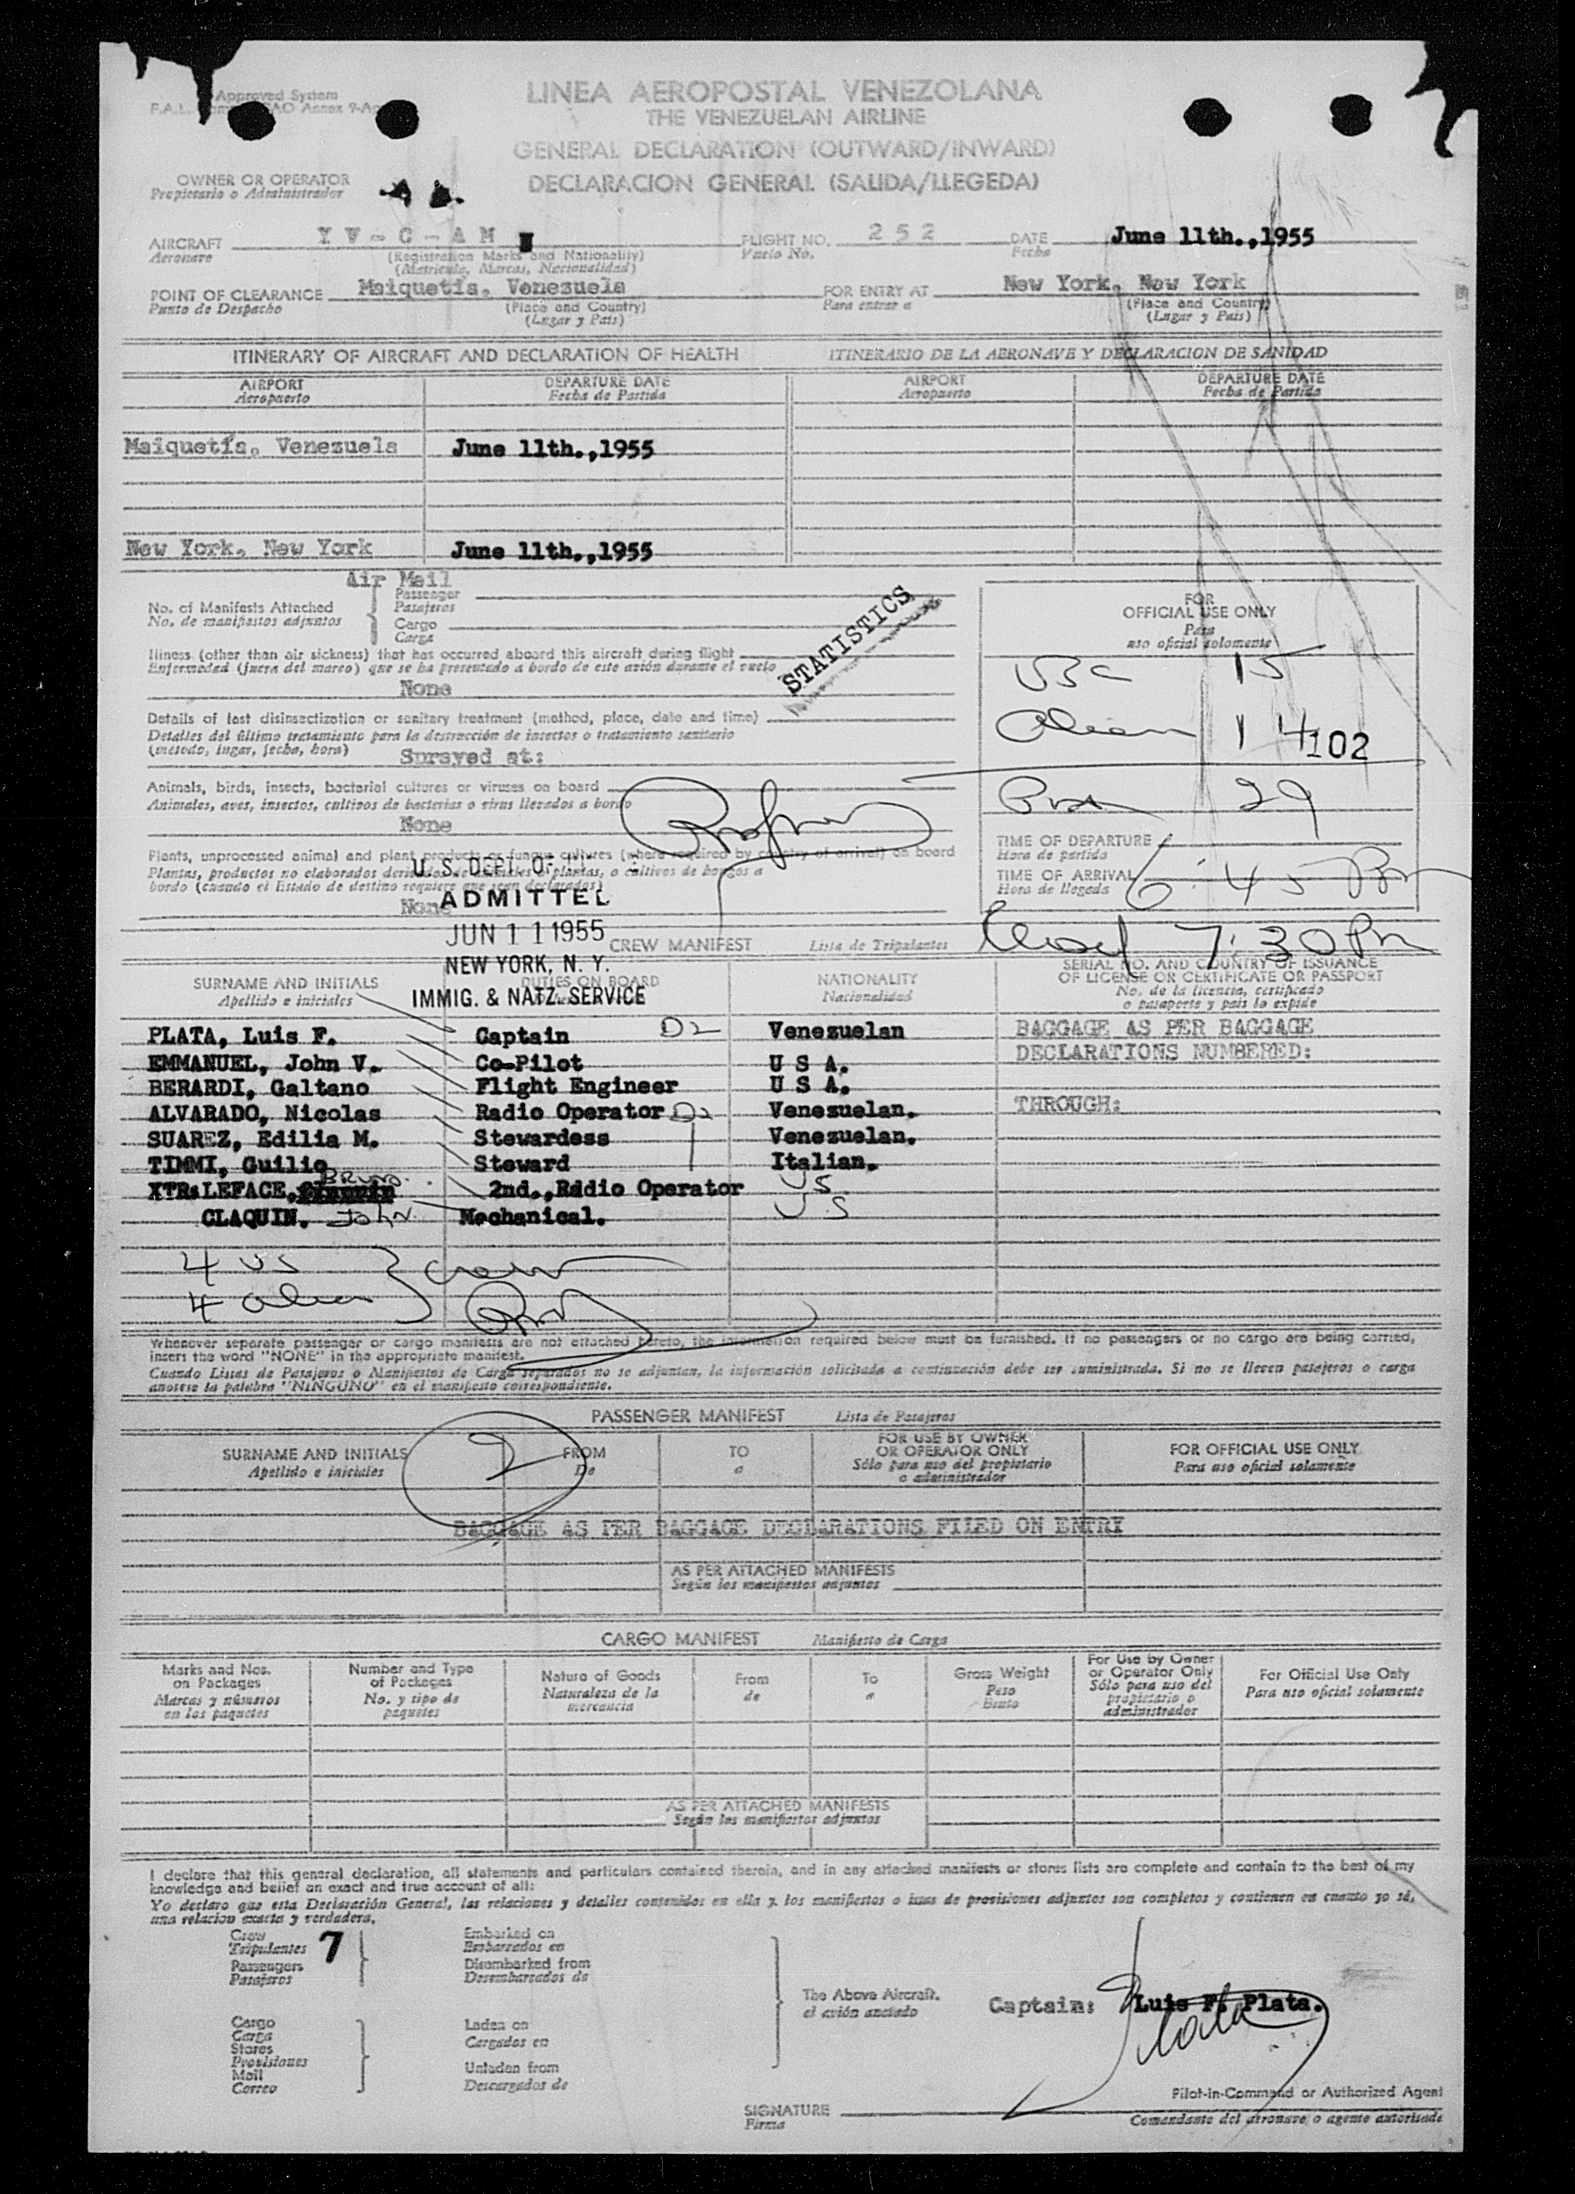 Approved System
LINEA AEROPOSTAL VENEZOLANA
THE VENEZUELAN AIRLINE
GENERAL DECLARATION (OUTWARD/INWARD)
DECLARACION GENERAL (SALIDA/LLEGEDA)
OWNER OR OPERATOR
Propietario o Administrador
AIRCRAFT YV-C-AM FLIGHT NO. 252 DATE June 11th.,1955
Aeronave (Registration Marks and Nationality) Vuelo No. Fecha
(Matricula, Marcas, Nacionalidad)
POINT OF CLEARANCE Maiquetía, Venezuela FOR ENTRY AT New York, New York
Punto de Despacho (Place and Country) Para entrar a (Place and Country)
(Lugar y Pais) (Lugar y Pais)
ITINERARY OF AIRCRAFT AND DECLARATION OF HEALTH ITINERARIO DE LA AERONAVE Y DECLARACION DE SANIDAD
AIRPORT DEPARTURE DATE AIRPORT DEPARTURE DATE
Aeropuerto Fecha de Partida Aeropuerto Fecha de Partida
Maiquetía, Venezuela June 11th.,1955
New York, New York June 11th.,1955
Air Mail
No. of Manifests Attached Passenger
No. de manifiestos adjuntos Pasajeros
Cargo
Carga
STATISTICS
FOR
OFFICIAL USE ONLY
Para
uso oficial solamente
USC 15
Alien 14
102
29
Illness (other than air sickness) that has occurred aboard this aircraft during flight
Enfermedad (fuera del mareo) que se ha presentado a bordo de este avión durante el vuelo
None
Details of last disinsectization or sanitary treatment (method, place, date and time)
Detalles del último tratamiento para la destrucción de insectos o tratamiento sanitario
(método, lugar, fecha, hora) Sprayed at:
Animals, birds, insects, bacterial cultures or viruses on board
Animales, aves, insectos, cultivos de bacterias o virus llevados a bordo
None
TIME OF DEPARTURE
Hora de partida
TIME OF ARRIVAL 6:45 Pm
Hora de llegada
Plants, unprocessed animal and plant products or fungus cultures (where required by country of arrival) on board
Plantas, productos no elaborados derivados de animales o plantas, o cultivos de hongos a
bordo (cuando el Estado de destino requiere que sean declarados)
None
U. S. DEPT. OF
ADMITTED
JUN 11 1955
NEW YORK, N. Y.
IMMIG. & NATZ. SERVICE
7:30 Pm
CREW MANIFEST Lista de Tripulantes
SURNAME AND INITIALS DUTIES ON BOARD NATIONALITY SERIAL NO. AND COUNTRY OF ISSUANCE
Apellido e iniciales Nacionalidad OF LICENSE OR CERTIFICATE OR PASSPORT
No. de la licencia, certificado
o pasaporte y pais lo expide
PLATA, Luis F. Captain D2 Venezuelan BAGGAGE AS PER BAGGAGE
EMMANUEL, John V. Co-Pilot U S A. DECLARATIONS NUMBERED:
BERARDI, Galtano Flight Engineer U S A.
ALVARADO, Nicolas Radio Operator D2 Venezuelan. THROUGH:
SUAREZ, Edilia M. Stewardess Venezuelan.
TIMMI, Guilio Steward Italian.
XTR:LEFACE, BRUNO 2nd.,Radio Operator US
CLAQUIN. John Mechanical. US
4 US
4 alien crew
Whenever separate passenger or cargo manifests are not attached hereto, the information required below must be furnished. If no passengers or no cargo are being carried,
insert the word "NONE" in the appropriate manifest.
Cuando Listas de Pasajeros o Manifiestos de Carga separados no se adjuntan, la información solicitada a continuación debe ser suministrada. Si no se llevan pasajeros o carga
anotese la palabra "NINGUNO" en el manifiesto correspondiente.
PASSENGER MANIFEST Lista de Pasajeros
SURNAME AND INITIALS FROM TO FOR USE BY OWNER FOR OFFICIAL USE ONLY
Apellido e iniciales De a OR OPERATOR ONLY Para uso oficial solamente
Sólo para uso del propietario
o administrador
2
BAGGAGE AS PER BAGGAGE DECLARATIONS FILED ON ENTRY
AS PER ATTACHED MANIFESTS
Según los manifiestos adjuntos
CARGO MANIFEST Manifiesto de Carga
Marks and Nos. Number and Type Nature of Goods From To Gross Weight For Use by Owner For Official Use Only
on Packages of Packages Naturaleza de la de a Peso or Operator Only Para uso oficial solamente
Marcas y números No. y tipo de mercancia Bruto Sólo para uso del
en los paquetes paquetes propietario o
administrador
AS PER ATTACHED MANIFESTS
Según los manifiestos adjuntos
I declare that this general declaration, all statements and particulars contained therein, and in any attached manifests or stores lists are complete and contain to the best of my
knowledge and belief an exact and true account of all:
Yo declaro que esta Declaración General, las relaciones y detalles contenidos en ella y los manifiestos o listas de provisiones adjuntos son completos y contienen en cuanto yo sé,
una relacion exacta y verdadera.
Crew 7 Embarked on
Tripulantes Embarcados en
Passengers Disembarked from
Pasajeros Desembarcados de
The Above Aircraft.
el avión anotado
Captain: Luis F. Plata.
Cargo Laden on
Carga Cargados en
Stores
Provisiones
Mail Unladen from
Correo Descargados de
Pilot-in-Command or Authorized Agent
SIGNATURE
Firma Comandante del aeronave o agente autorizado